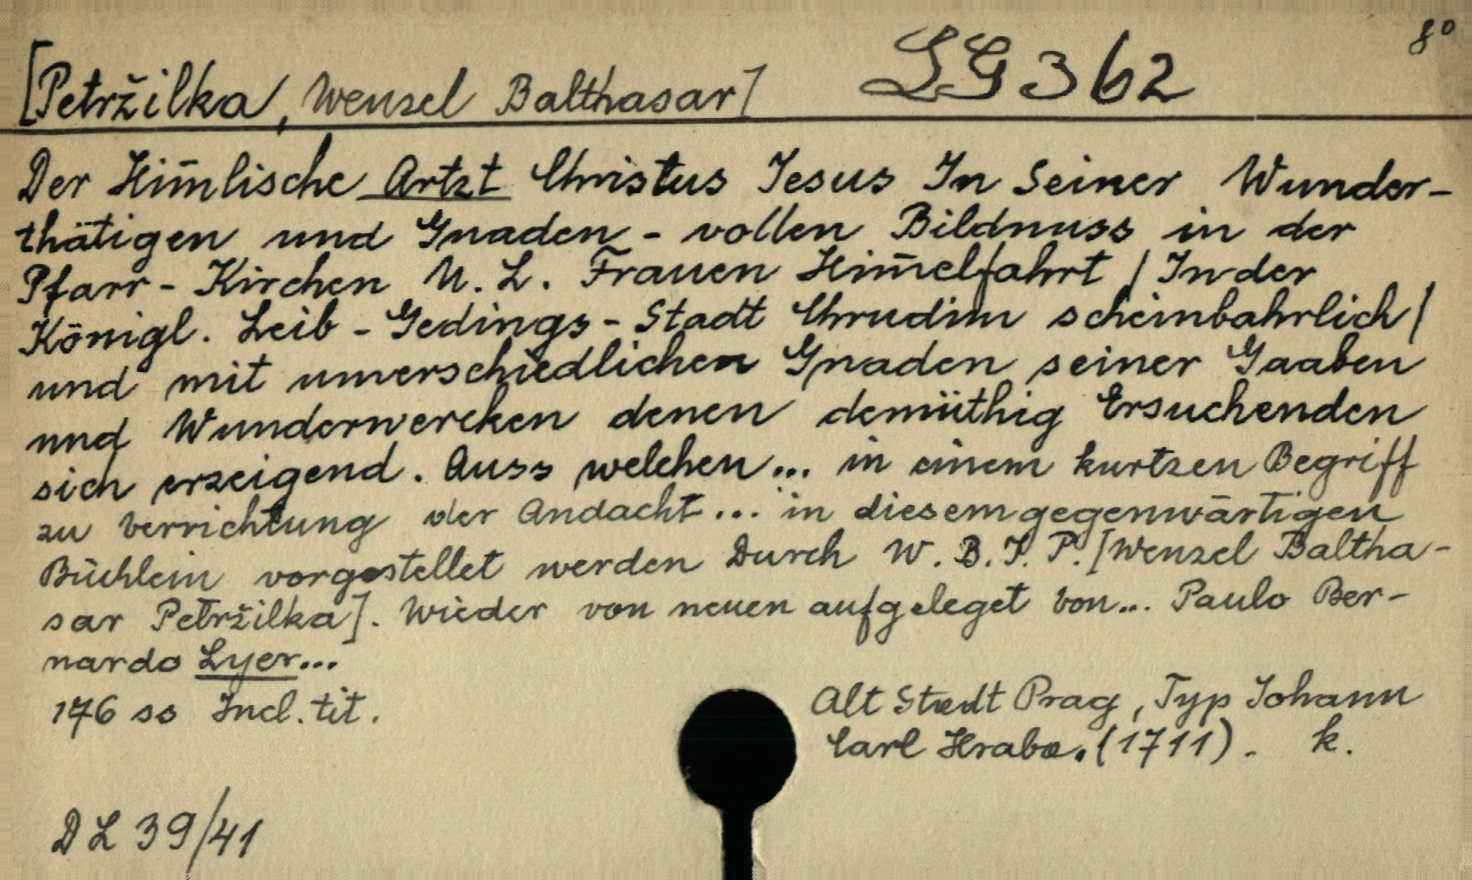 [Petržilka, Wenzel Balthasar] LG 362 8°
Der Him̄lische Artzt Christus Jesus In Seiner Wunder-
thätigen und Gnaden-vollen Bildnuss in der
Pfarr-Kirchen U. L. Frauen Him̄elfahrt / In der
Königl. Leib-Gedings-Stadt Chrudim scheinbahrlich /
und mit unnerschiedlichen Gnaden seiner Gaaben
und Wunderwercken denen demüthig Ersuchenden
sich erzeigend. Auss welchen... in einem kurtzen Begriff
zu Verrichtung der Andacht... in diesem gegenwärtigen
Büchlein vorgestellet werden Durch W. B. J. P. [Wenzel Baltha-
sar Petržilka]. Wieder von neuen aufgeleget von... Paulo Ber-
nardo Lyer...
176 ss Incl. tit.
Alt Stadt Prag, Typ Johann
Carl Hraba. (1711). k.
DL 39/41